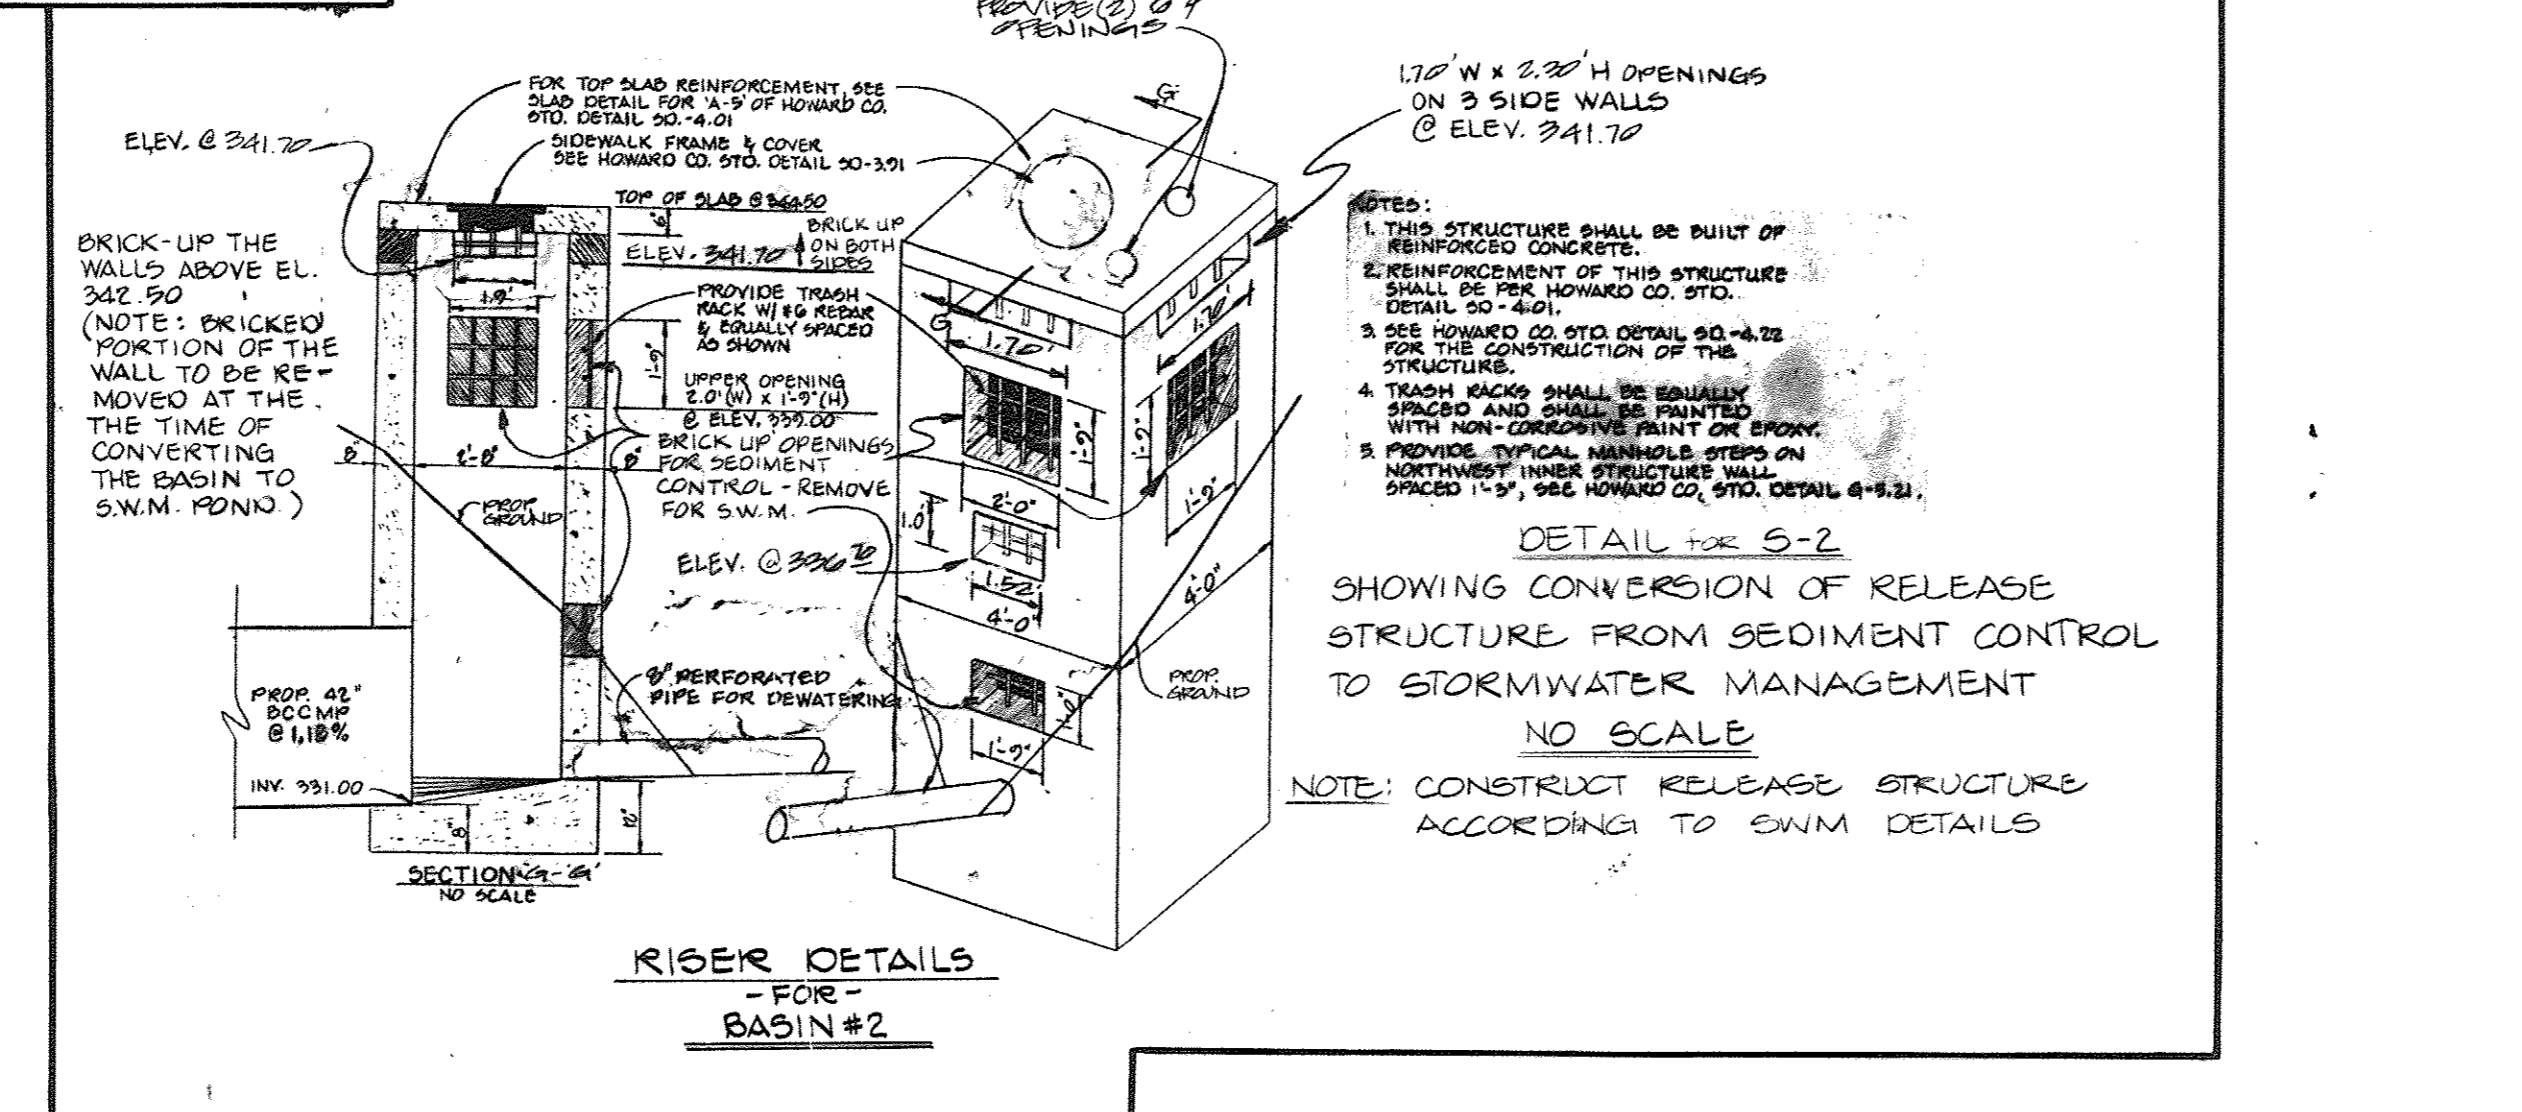 PROVIDE (2)
OPENINGS
FOR TOP SLAB REINFORCEMENT, SEE
SLAB DETAIL FOR 'A-5' OF HOWARD CO.
STD. DETAIL SD.-4.01
SIDEWALK FRAME & COVER
SEE HOWARD CO. STD. DETAIL SD-3.91
ELEV. @ 341.70
TOP OF SLAB @
6"
BRICK UP
ON BOTH
SIDES
ELEV. 341.70
BRICK-UP THE
WALLS ABOVE EL.
342.50
(NOTE: BRICKED
PORTION OF THE
WALL TO BE RE-
MOVED AT THE
THE TIME OF
CONVERTING
THE BASIN TO
S.W.M. POND.)
1.9'
PROVIDE TRASH
RACK W/ #6 REBAR
& EQUALLY SPACED
AS SHOWN
1'-9"
UPPER OPENING
2.0'(W) x 1'-9"(H)
@ ELEV. 339.00
BRICK UP OPENINGS
FOR SEDIMENT
CONTROL - REMOVE
FOR S.W.M.
8"
2'-8"
8"
PROP.
GROUND
ELEV. @ 336 70
8" PERFORATED
PIPE FOR DEWATERING
PROP. 42"
BCCMP
@
INV. 331.00
8"
12"
SECTION 'G-G'
NO SCALE
G
G
1.70'
1.70'
1'-9"
1'-9"
2'-0"
1'-9"
1.0'
1.52'
4'-0"
4'-0"
1'-0"
1'-9"
PROP.
GROUND
RISER DETAILS
- FOR -
BASIN #2
1.70' W x 2.30' H OPENINGS
ON 3 SIDE WALLS
@ ELEV. 341.70
NOTES:
1. THIS STRUCTURE SHALL BE BUILT OF
REINFORCED CONCRETE.
2. REINFORCEMENT OF THIS STRUCTURE
SHALL BE PER HOWARD CO. STD.
DETAIL SD-4.01.
3. SEE HOWARD CO. STD. DETAIL SD.-4.22
FOR THE CONSTRUCTION OF THE
STRUCTURE.
4. TRASH RACKS SHALL BE EQUALLY
SPACED AND SHALL BE PAINTED
WITH NON-CORROSIVE PAINT OR EPOXY.
5. PROVIDE TYPICAL MANHOLE STEPS ON
NORTHWEST INNER STRUCTURE WALL
SPACED 1'-3", SEE HOWARD CO, STD. DETAIL G-5.21.
DETAIL FOR S-2
SHOWING CONVERSION OF RELEASE
STRUCTURE FROM SEDIMENT CONTROL
TO STORMWATER MANAGEMENT
NO SCALE
NOTE: CONSTRUCT RELEASE STRUCTURE
ACCORDING TO SWM DETAILS